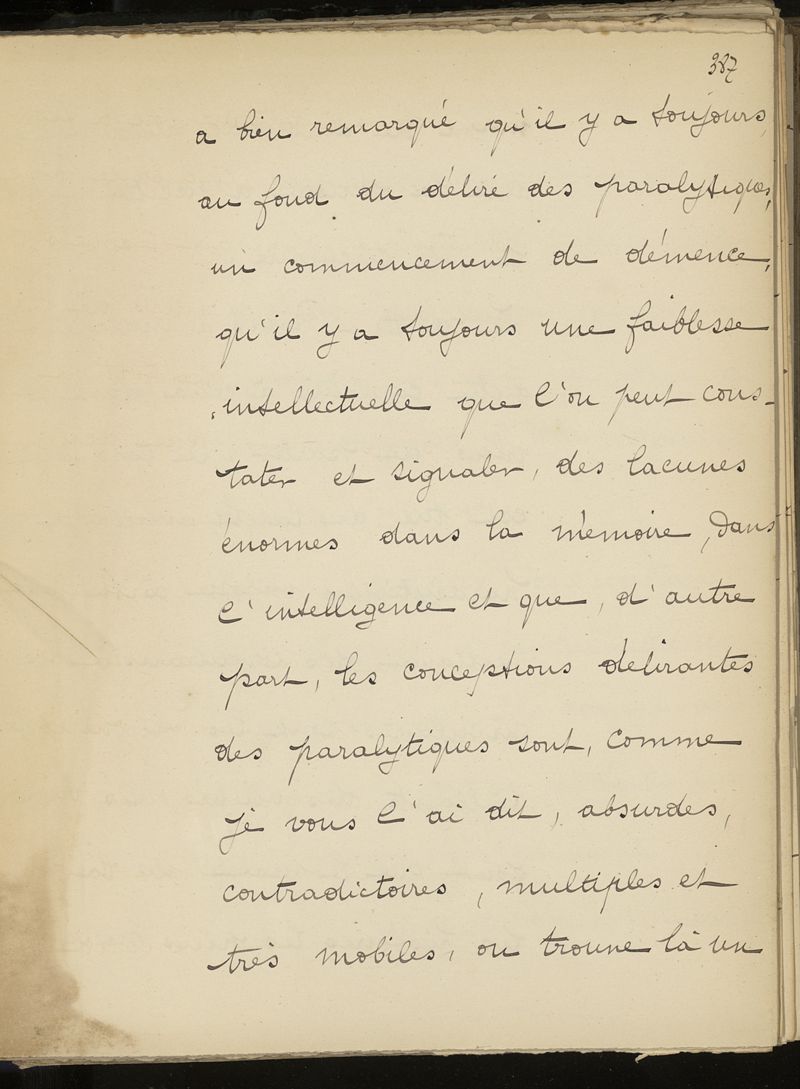 387
a bien remarqué qu'il y a toujours,
au fond du délire des paralytiques,
un commencement de démence,
qu'il y a toujours une faiblesse
intellectuelle que l'on peut cons-
tater et signaler, des lacunes
énormes dans la mémoire, dans
l'intelligence et que, d'autre
part, les conceptions délirantes
des paralytiques sont, comme
je vous l'ai dit, absurdes,
contradictoires, multiples et
très mobiles, on trouve là un